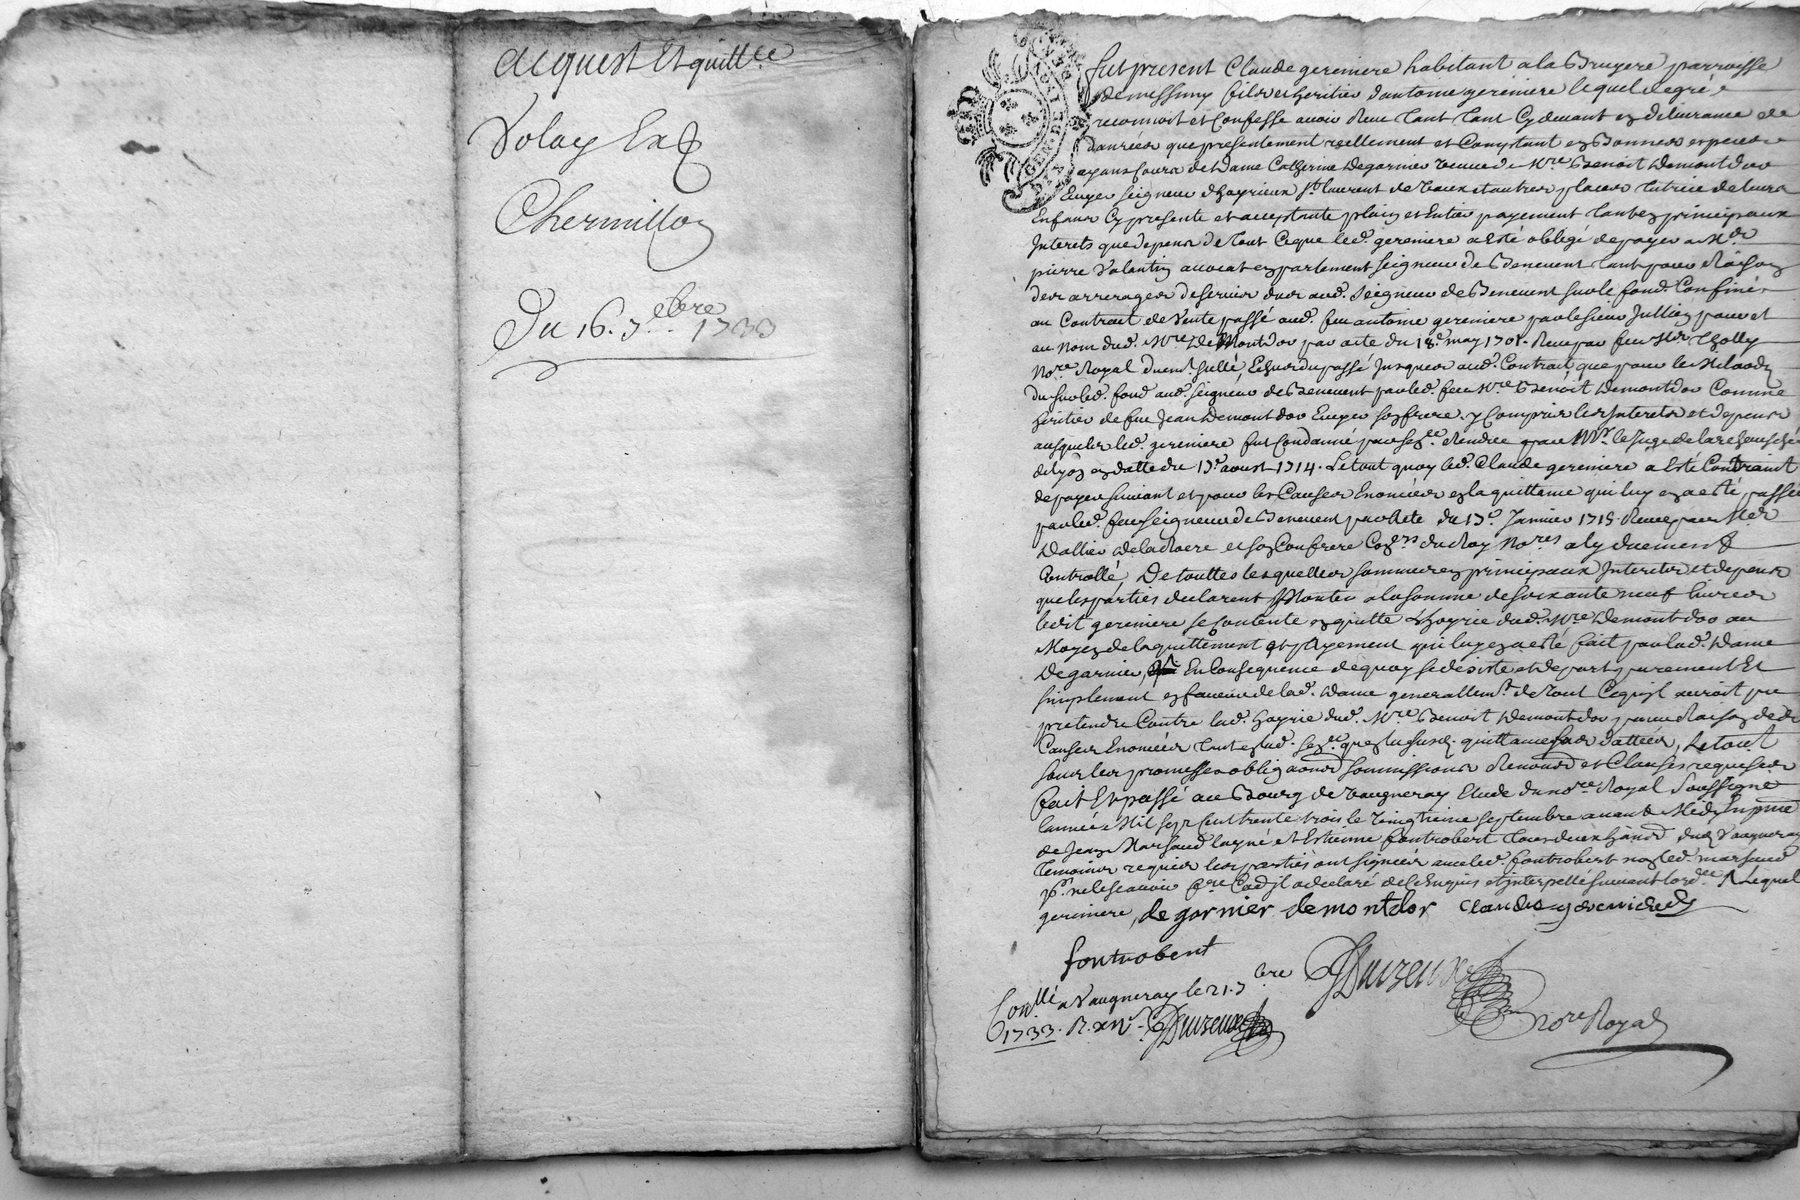 acquest Et quitt.ce
Volay Et
Chermillon
Du 16. 7.bre 1733
fut present Claude geremiere habitant a la Bruyere parroisse
de messimy fils et heritier d'antoine geremiere lequel de gré
reconnoit et Confesse avoir Receu tant Cydevant en delivrance de
danrées que presentement reellement et Comptant en Bonnes especes
ayans cours de Dame Catherine Degarnier veuve de Mre Benoit Demontdor
Ecuyer seigneur d'hoyrieux St. laurent de vaux et autres places tutrice de leurs
Enfans Cy presente et acceptante plain et Entier payement tant en principaux
Interets que depens de tout Ceque led. geremiere a Esté obbligé de payer a Mr
pierre Valantin avocat en parlement seigneur de Benevent tant pour Raison
des arrerages de servis dus aud. seigneur de Benevent sur le fond Confiné
au Contract de Vente passé aud. feu antoine geremiere par le sieur Jullien pour et
au nom dud. Mre De Montdor par acte du 18e may 1701. Receu par feu Mr Tholly
Nore Royal duemt Sellé, Echus du passé Jusques aud. Contrat que pour le Milaods
du sur led. fond aud. seigneur de Benevent par led. feu Mre Benoit Demontdor Comme
heritier de feu Jean Demontdor Ecuyer son frere, y Compris les Interets et depens
ausquels led. geremiere fut Condamné par sence Rendue par Mr le Juge de l'archevesché
de Lyon en datte du 17e aoust 1714. Le tout quoy led. Claude geremiere a Esté Contraint
de payer suivant et pour les Causes Enoncées en la quittance qui luy en a esté passée
par led. feu seigneur de Benevent par acte du 17e Janvier 1715 Receu par Mrs
Dallier de la Roere et son Confrere Conrs du Roy Nores a Lyon duement
Controllé, De touttes lesquelles sommes en principaux Interets et depens
que les parties declarent Monter a la somme de soixante neuf livres
ledit geremiere se Contente en quitte l'hoyrie dud. Mre Demontdor au
Moyen de laquittement et payement qui luy en a esté fait par lad. Dame
Degarnier, En Consequence de quoy se desiste et depart purement Et
simplement en faveur de lad. Dame generallemt. de tout Cequ'il auroit pu
pretendre Contre lad. hoyrie dud. Mre Benoit Demontdor pour Raison des
Causes Enoncées tant en lad. sence. qu'en la susd. quittance sus dattées, Le tout
sous les promesses obligaons soumissions Renons et Clauses requises
fait Et passé au Bourg de Vaugneray Etude du nore Royal Soussigné
l'année Mil sept Cent trente trois le vingtieme septembre avant Midy En pnce
de Jean Marsaud layné et Estienne fontrobert tous deux hants dud. Vaugneray
temoins requis les parties ont signées avec led. fontrobert non led. marsaud
pr ne le scavoir fre Cod'il a declaré de ce Enquis et interpellé suivant l'ordce Lequel
geremiere, de garnier de montdor Claude geremiere
fontrobert
Conllé a Vaugneray le 21. 7bre
1733. R. xii s.
Nore Royal